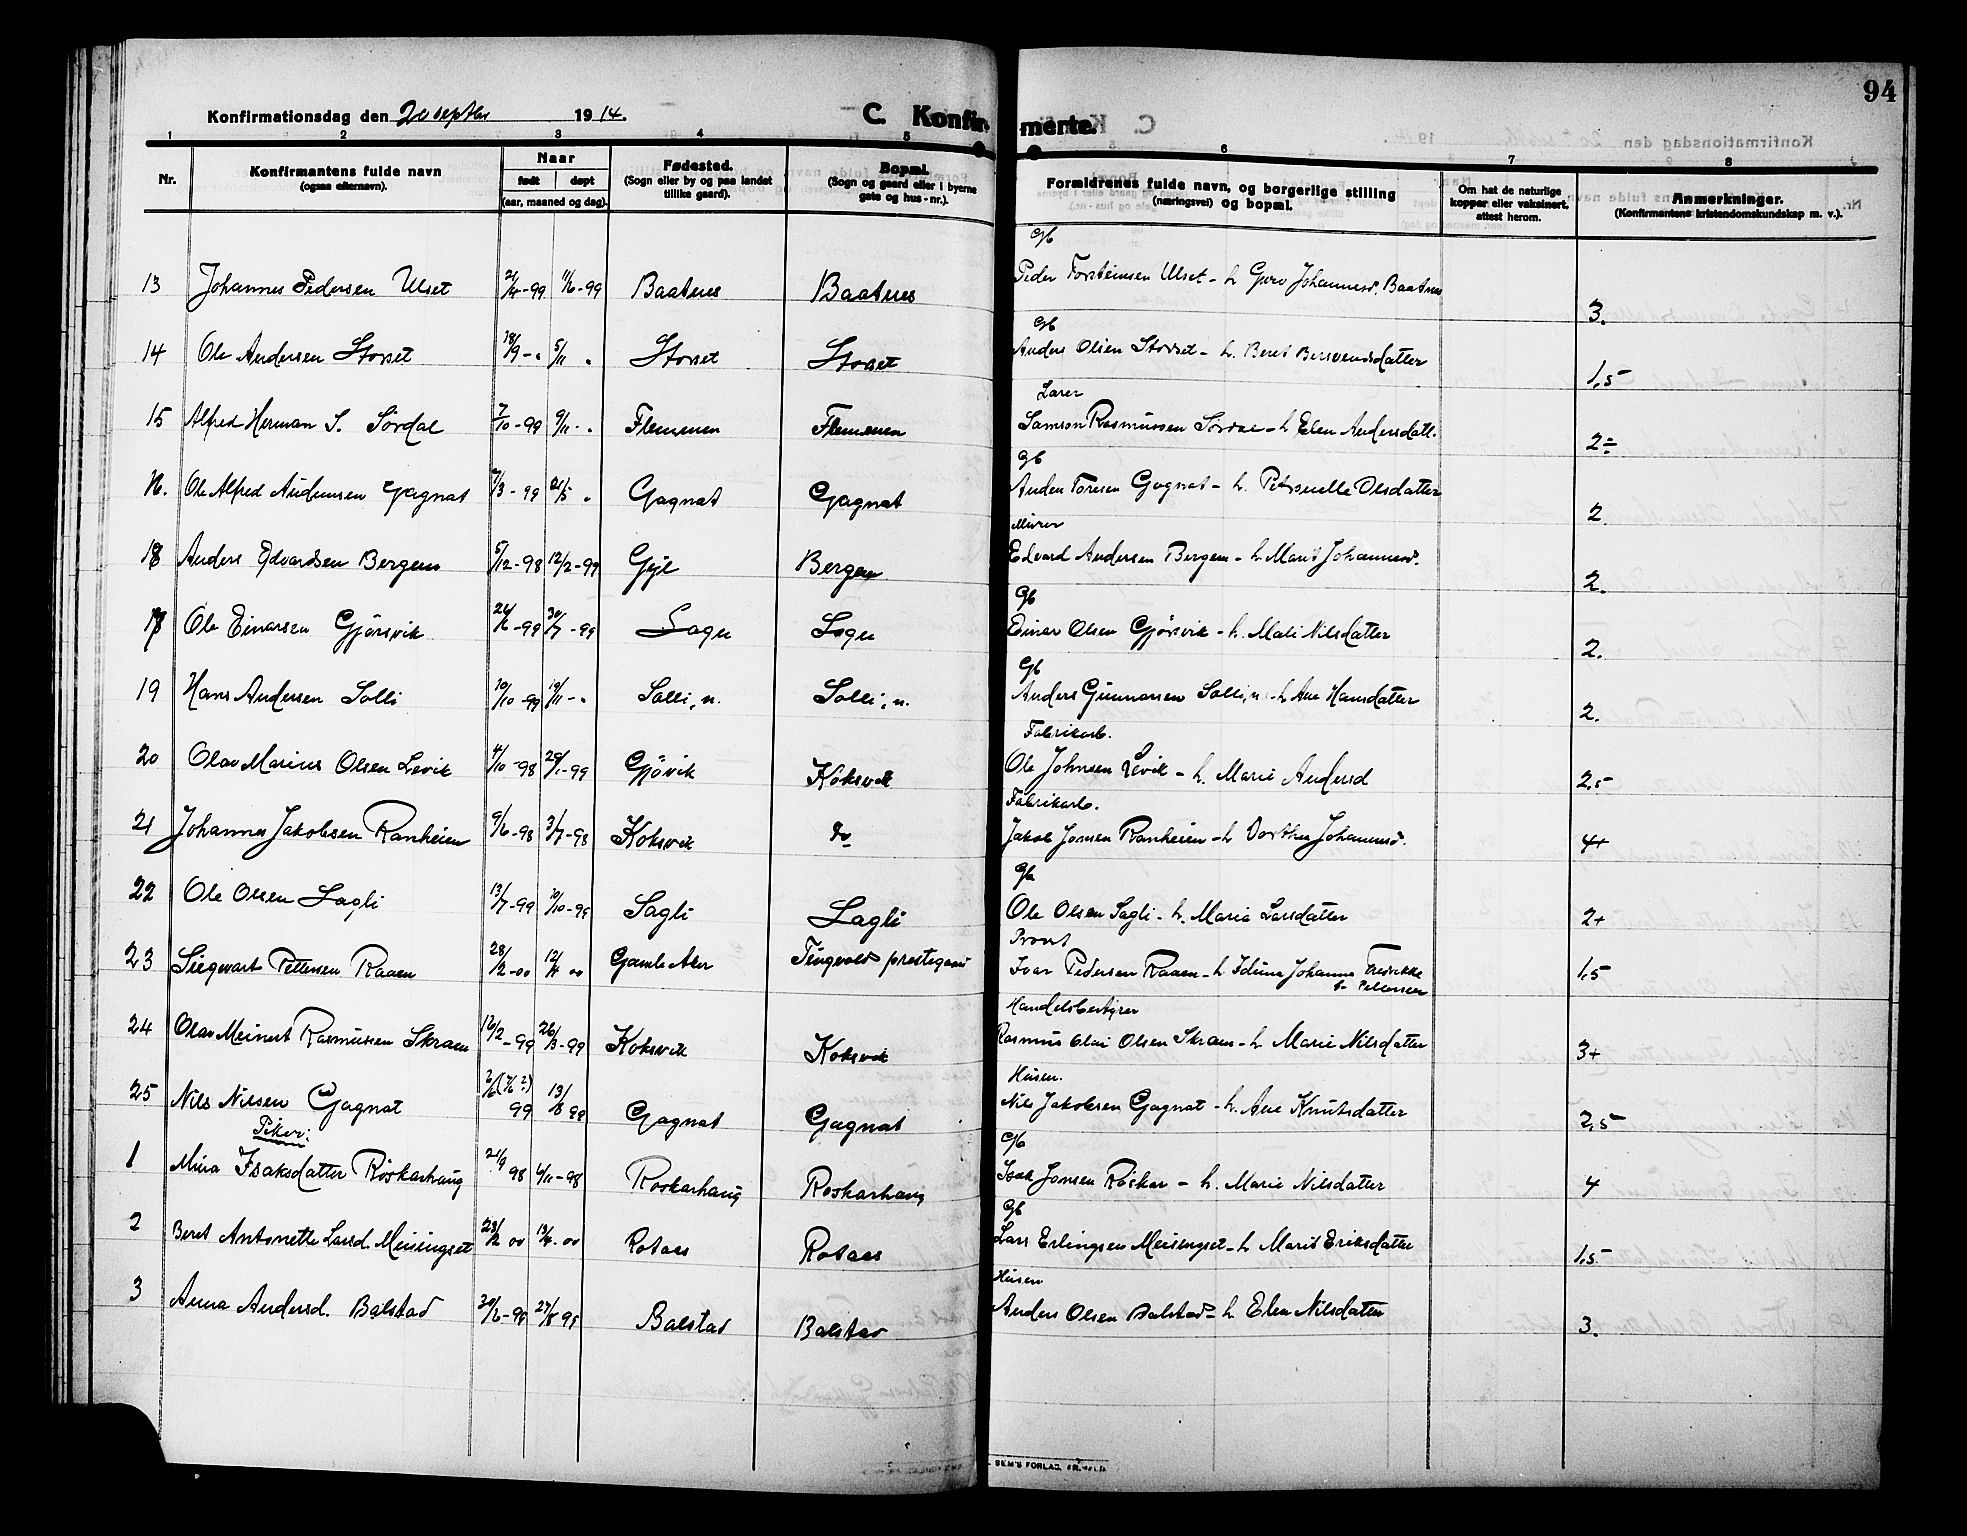 94
Konfirmationsdag den 20 septbr 1914.
C. Konfirmerte.
1 2 3 4 5 6 7 8
Nr. Konfirmantens fulde navn (ogsaa efternavn). Naar født døpt (aar, maaned og dag). Fødested. (Sogn eller by og paa landet tillike gaard). Bopæl. (Sogn og gaard eller i byerne gate og hus-nr.). Forældrenes fulde navn, og borgerlige stilling (næringsvei) og bopæl. Om hat de naturlige kopper eller vaksinert, attest herom. Anmerkninger. (Konfirmantens kristendomskundskap m. v.).
Gb
13 Johannes Pedersen Ulset 21/4-99 11/6-99 Baatnes Baatnes Peder Torsteinsen Ulset - h. Guro Johannesd. Baatnes 3.
Gb
14 Ole Andersen Storset 18/9 - " 5/11 " Storset Storset Anders Olsen Storset - h. Beret Bersvendsdatter 1,5
Lærer
15 Alfred Herman S. Sördal 7/10-99 9/11 - " Flemmen Flemmen Samson Rasmussen Sördal - h Elen Andersdatt. 2÷
Gb
Ole Alfred Audunsen Gagnat 7/3-99 21/5 " Gagnat Gagnat Auden Toresen Gagnat - h. Petronelle Olsdatter 2.
Murer
18 Anders Edvardsen Bergem 5/12-98 12/2-99 Gyl Bergem Edvard Andersen Bergem - h. Marit Johannesd. 2.
Gb
17 Ole Einarsen Gjörsvik 26/6-99 30/7-99 Sagu Sagu Einar Olsen Gjörsvik - h. Mali Nilsdatter 2.
Gb
19 Hans Andersen Solli 10/10-99 19/11 - " Solli, n. Solli, n. Anders Gunnarsen Solli, n - h Ane Hansdatter 2.
Fabrikarb.
20 Olav Marius Olsen Levik 4/10-98 29/1-99 Gjövik Koksvik Ole Johnsen Levik - h. Marie Andersd 2,5
Fabrikarb.
21 Johannes Jakobsen Ranheim 9/6-98 3/7-98 Koksvik do Jakob Jonsen Ranheim - h Dorthea Johannesd. 4+
Gb
22 Ole Olsen Sagli 13/7-99 10/10-99 Sagli Sagli Ole Olsen Sagli - h. Maria Larsdatter 2+
Provst
23 Siegwart Pettersen Raaen 28/2-00 12/4 00 Gamle Aker Tingvold prestegaard Ivar Pedersen Raaen - h Iduna Johanna Fredrikke
f. Pettersen 1,5
Handelsbestyrer
24 Olav Meinert Rasmussen Skram 16/2-99 26/3-99 Koksvik Koksvik Rasmus Olai Olsen Skram - h Marie Nilsdatter 3+
Husm.
25 Nils Nilsen Gagnat 99 13/8 99 Gagnat Gagnat Nils Jakobsen Gagnat - h. Ane Knutsdatter 2,5
Piker:
Gb
1 Mina Isaksdatter Röskarhaug 21/9 98 4/11-98 Roskarhaug Roskarhaug Isak Jonsen Röskar - h. Marie Nilsdatter 4
Gb
2 Beret Antonette Larsd. Meisingset 23/2 00 13/4-00 Rotaas Rotaas Lars Erlingsen Meisingset - h Marit Eriksdatter 1,5
Husm
3 Anna Andersd. Balstad 30/6-98 27/8 98 Balstad Balstad Anders Olsen Balstad - h Elen Nilsdatter 3.
SEM'S FORLAG,